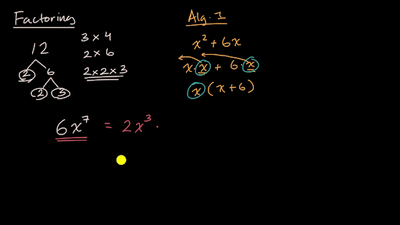 Factoring
3 × 4
12
2 × 6
2 6
2 × 2 × 3
2 3
Alg. I
x² + 6x
x · x + 6 · x
x (x + 6)
6x⁷ = 2x³ ·